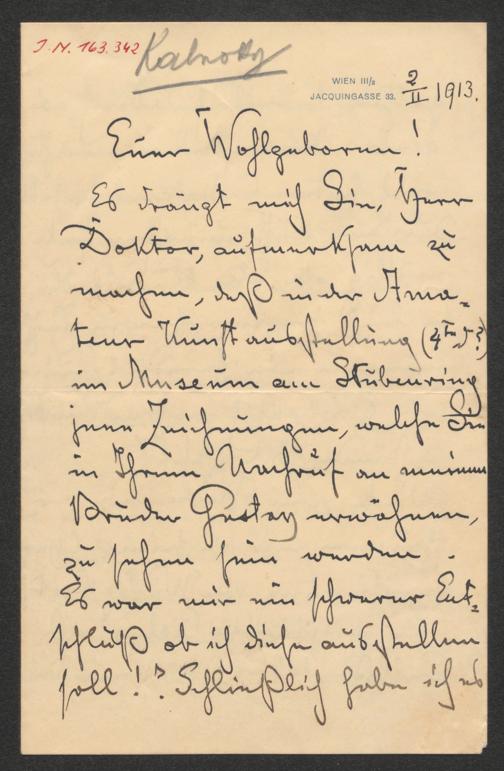 J. N. 163.342
Kalnoky
WIEN III/2
JACQUINGASSE 33.
2/II 1913.
Euer Wohlgeboren!
Es drängt mich Sie, Herr
Doktor, aufmerksam zu
machen, daß in der Ama-
teur Kunstausstellung
im Museum am Stubenring
jene Zeichnungen, welche Sie
in Ihrem Nachruf an meinen
Bruder Gustav erwähnen,
zu sehen sein werden.
Es war mir ein schwerer Ent-
schluß ob ich diese ausstellen
soll!? Schließlich habe ich es